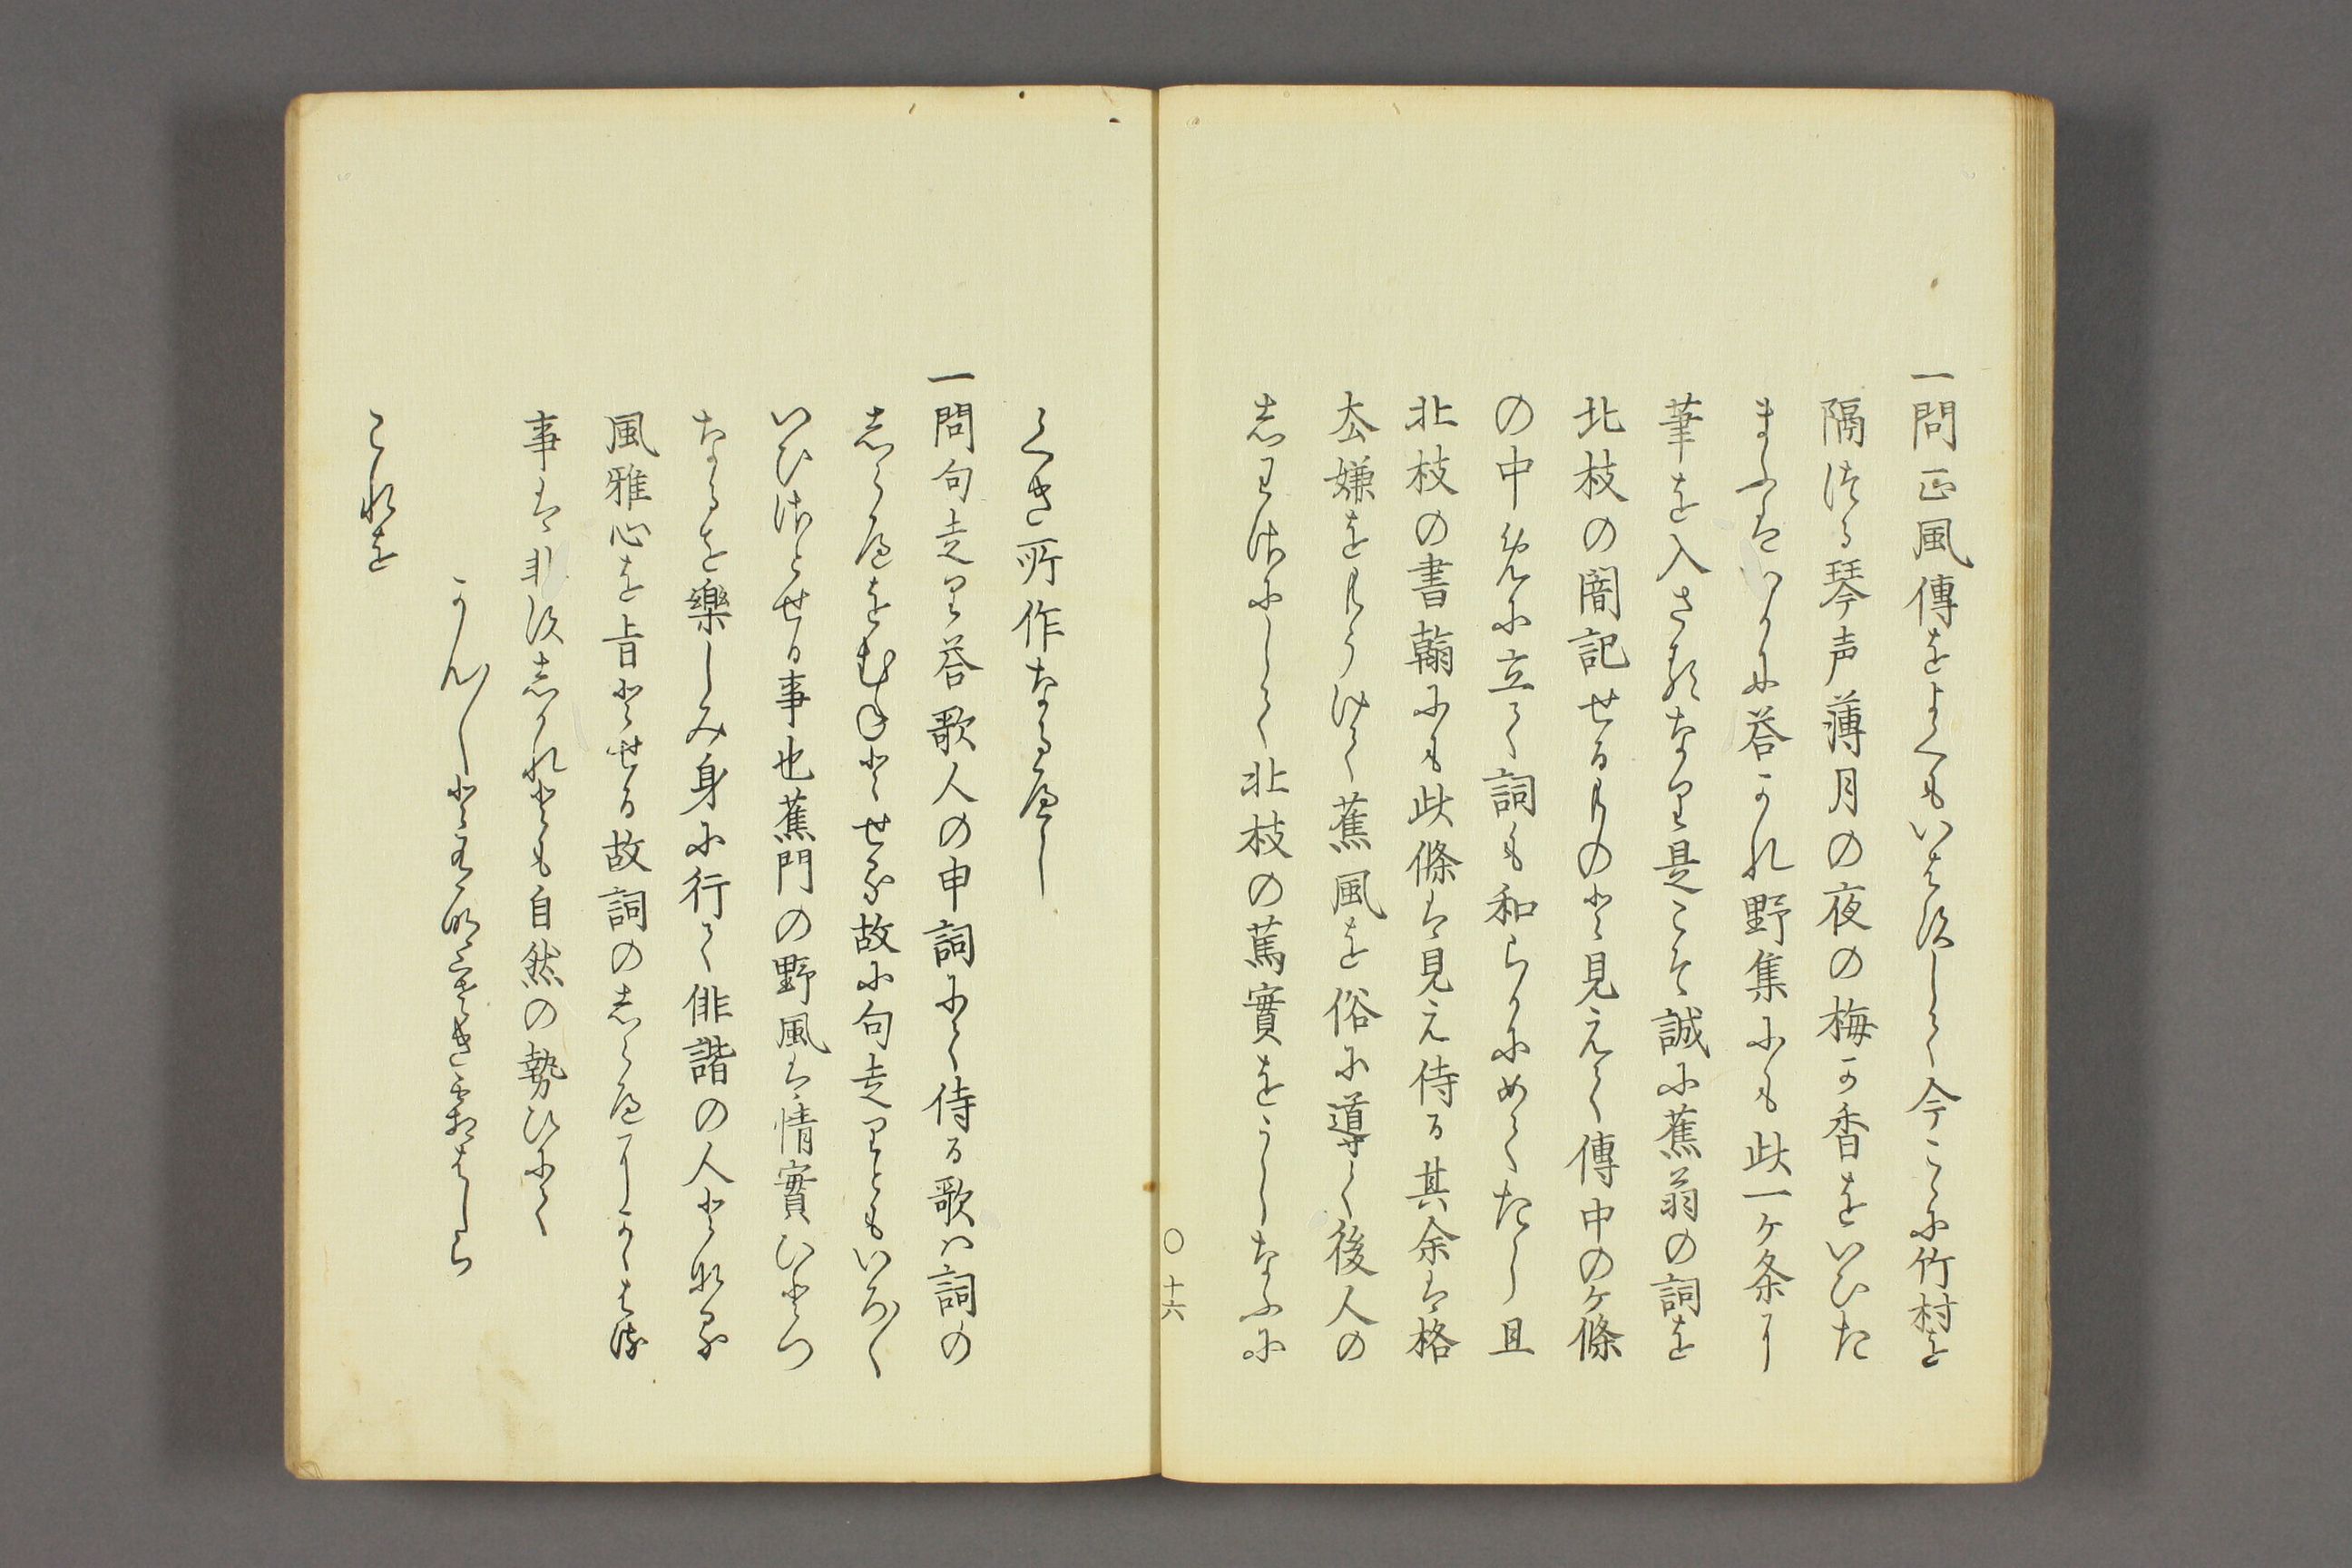 一問正風傳をよくもいはすして今こゝに竹村を
隔つる琴声薄月の夜の梅か香をいひた
まふはいかに答かれ野集にも此一ケ条に
筆を入さるなり是こそ誠に蕉翁の詞を
北枝の闇記せるものと見えて傳中のケ條
の中先に立て詞も和らかにめてたし且
北枝の書翰にも此條は見え侍る其余は格
去嫌をもうけて蕉風を俗に導て後人の
志わさにして北枝の萬實をうしなふに
○十六
くき所作なるへし
一問句走り答歌人の申詞にて侍る歌ハ詞の
志らへをむねとせる故に句走りともいろ〳〵
いひさとせる事也蕉門の野風は情實ひとつ
なるを樂しみ身に行て俳諧の人となる
風雅心を旨とせる故詞の志らへにかゝはる
事は非す志かれとも自然の勢ひにて
かん〳〵と
これを